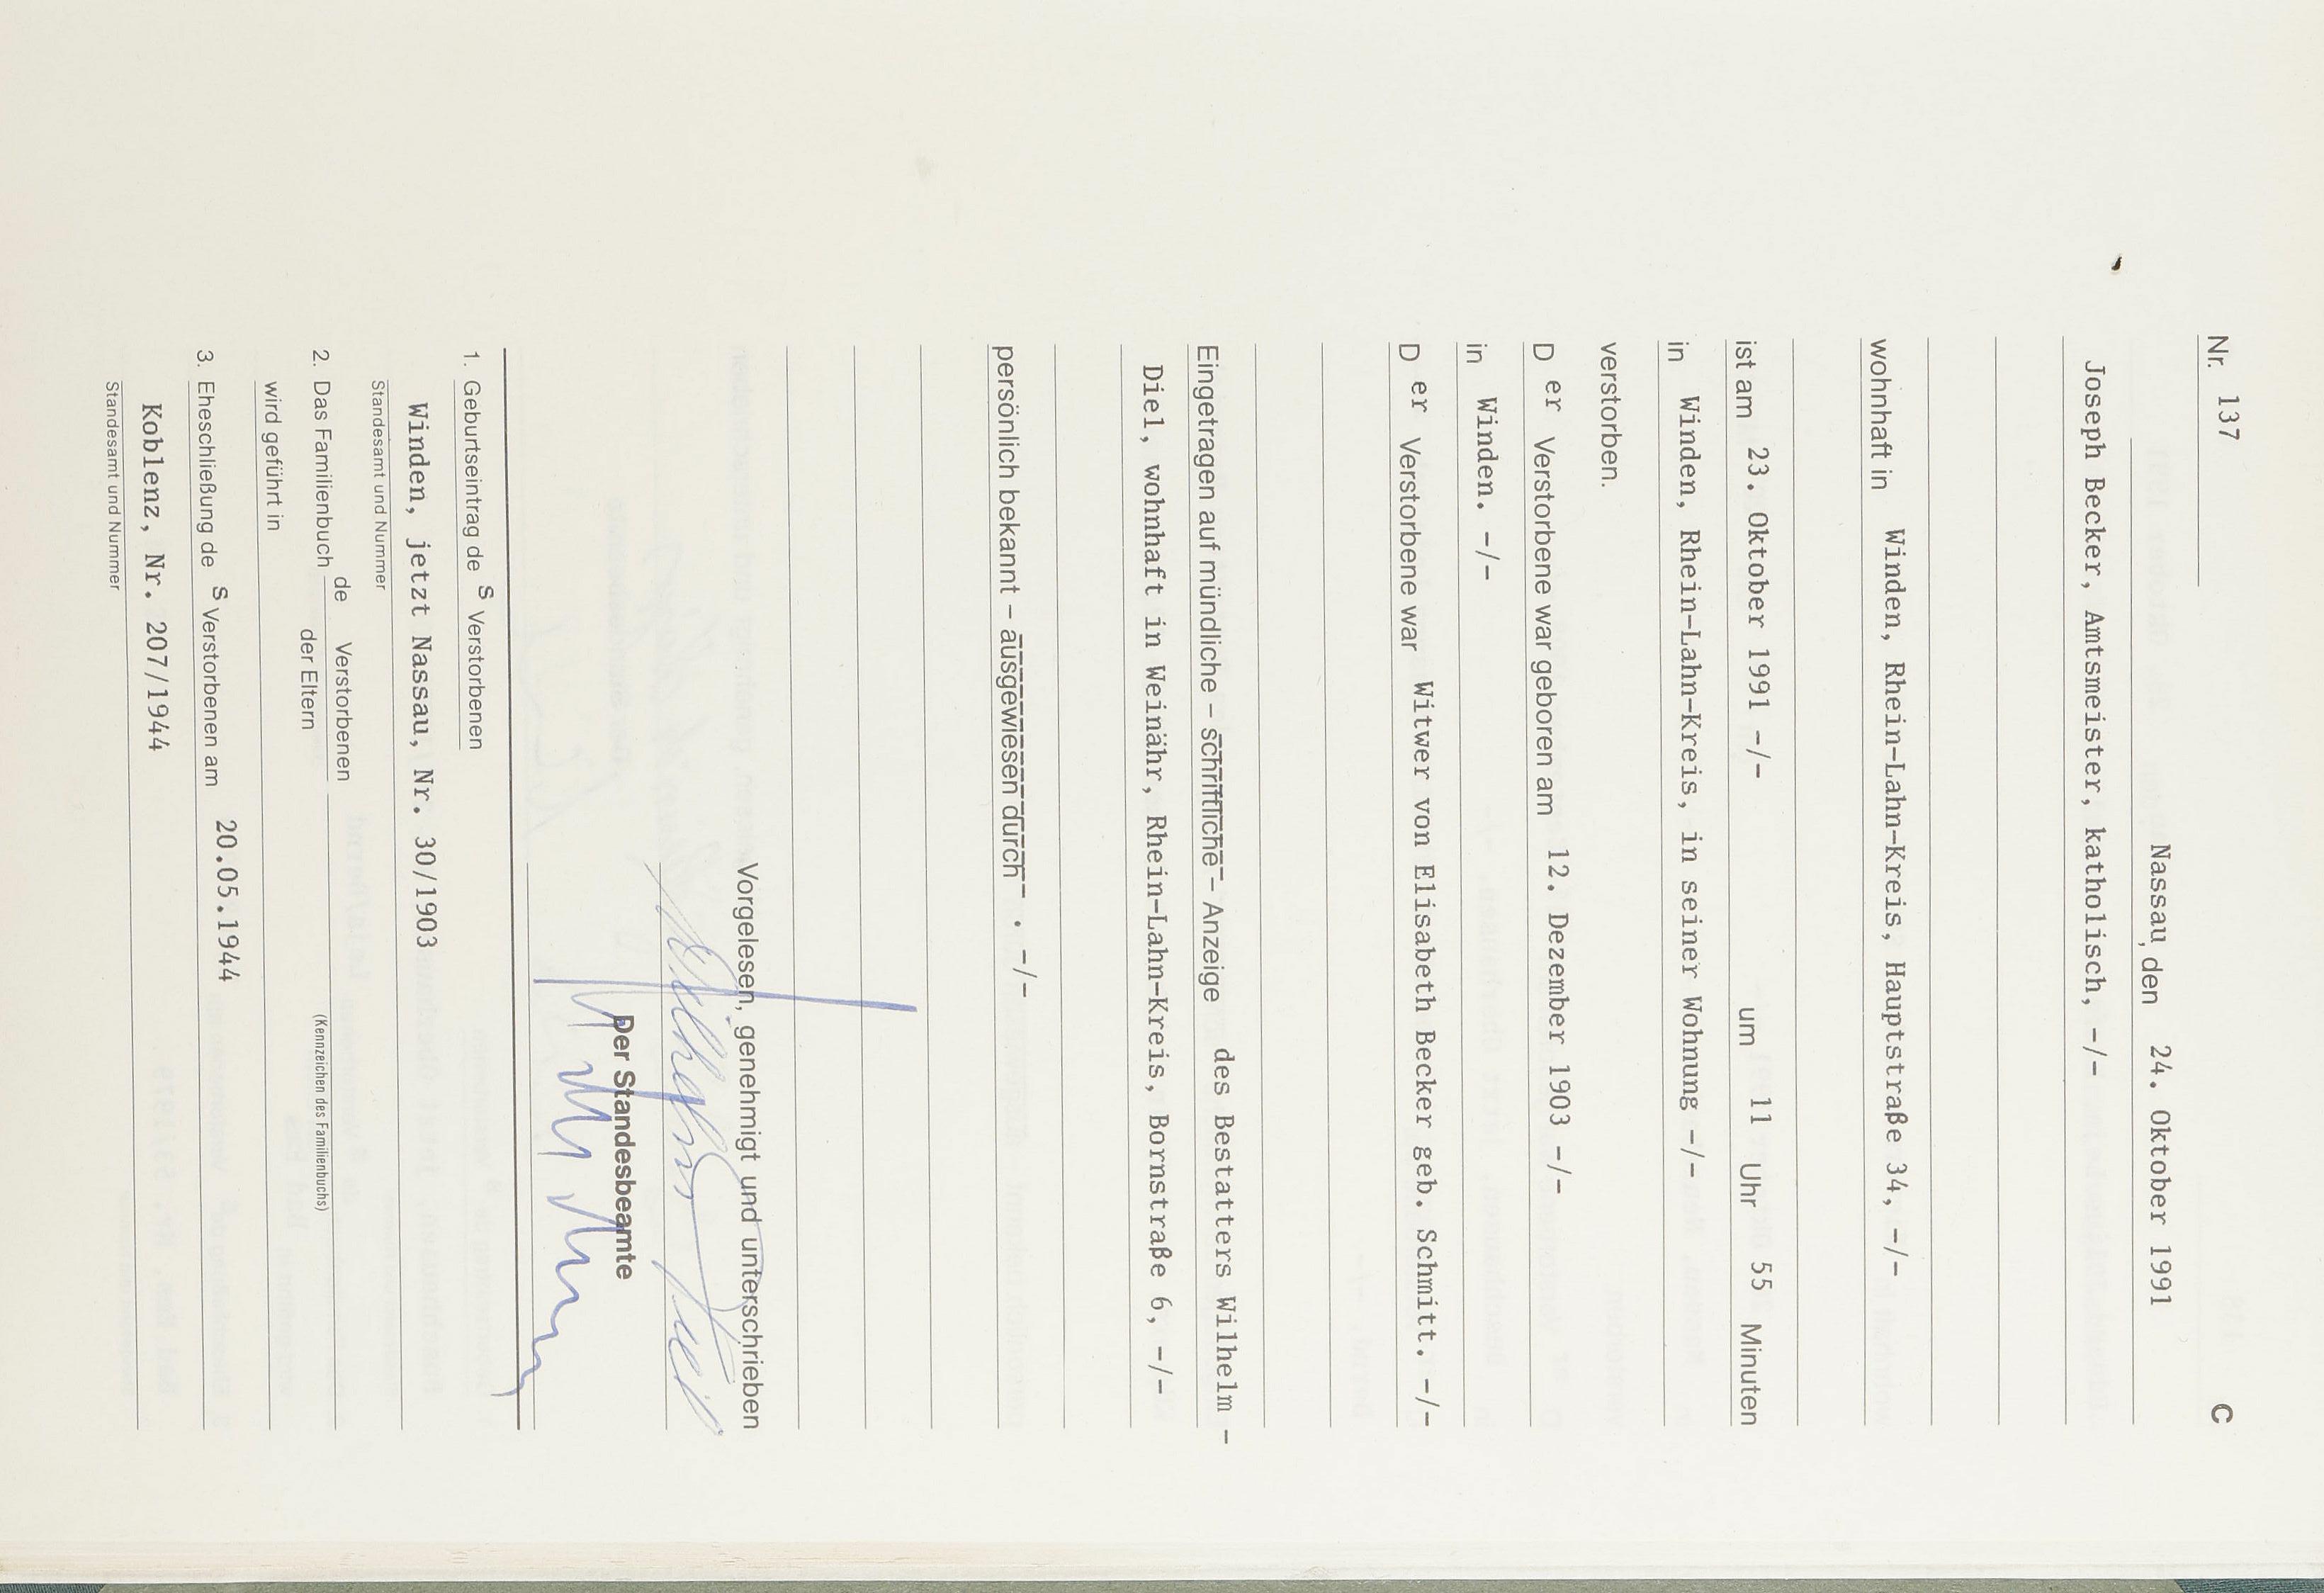 Nr. 137 C
Nassau, den 24. Oktober 1991
Joseph Becker, Amtsmeister, katholisch, -/-
wohnhaft in Winden, Rhein-Lahn-Kreis, Hauptstraße 34, -/-
ist am 23. Oktober 1991 -/- um 11 Uhr 55 Minuten
in Winden, Rhein-Lahn-Kreis, in seiner Wohnung -/-
verstorben.
D er Verstorbene war geboren am 12. Dezember 1903 -/-
in Winden. -/-
D er Verstorbene war Witwer von Elisabeth Becker geb. Schmitt. -/-
Eingetragen auf mündliche – schriftliche – Anzeige des Bestatters Wilhelm -
Diel, wohnhaft in Weinähr, Rhein-Lahn-Kreis, Bornstraße 6, -/-
persönlich bekannt – ausgewiesen durch . -/-
Vorgelesen, genehmigt und unterschrieben
Wilhelm Diel
Der Standesbeamte
1. Geburtseintrag de s Verstorbenen
Winden, jetzt Nassau, Nr. 30/1903
Standesamt und Nummer
2. Das Familienbuch de Verstorbenen
der Eltern (Kennzeichen des Familienbuchs)
wird geführt in
3. Eheschließung de s Verstorbenen am 20.05.1944
Koblenz, Nr. 207/1944
Standesamt und Nummer